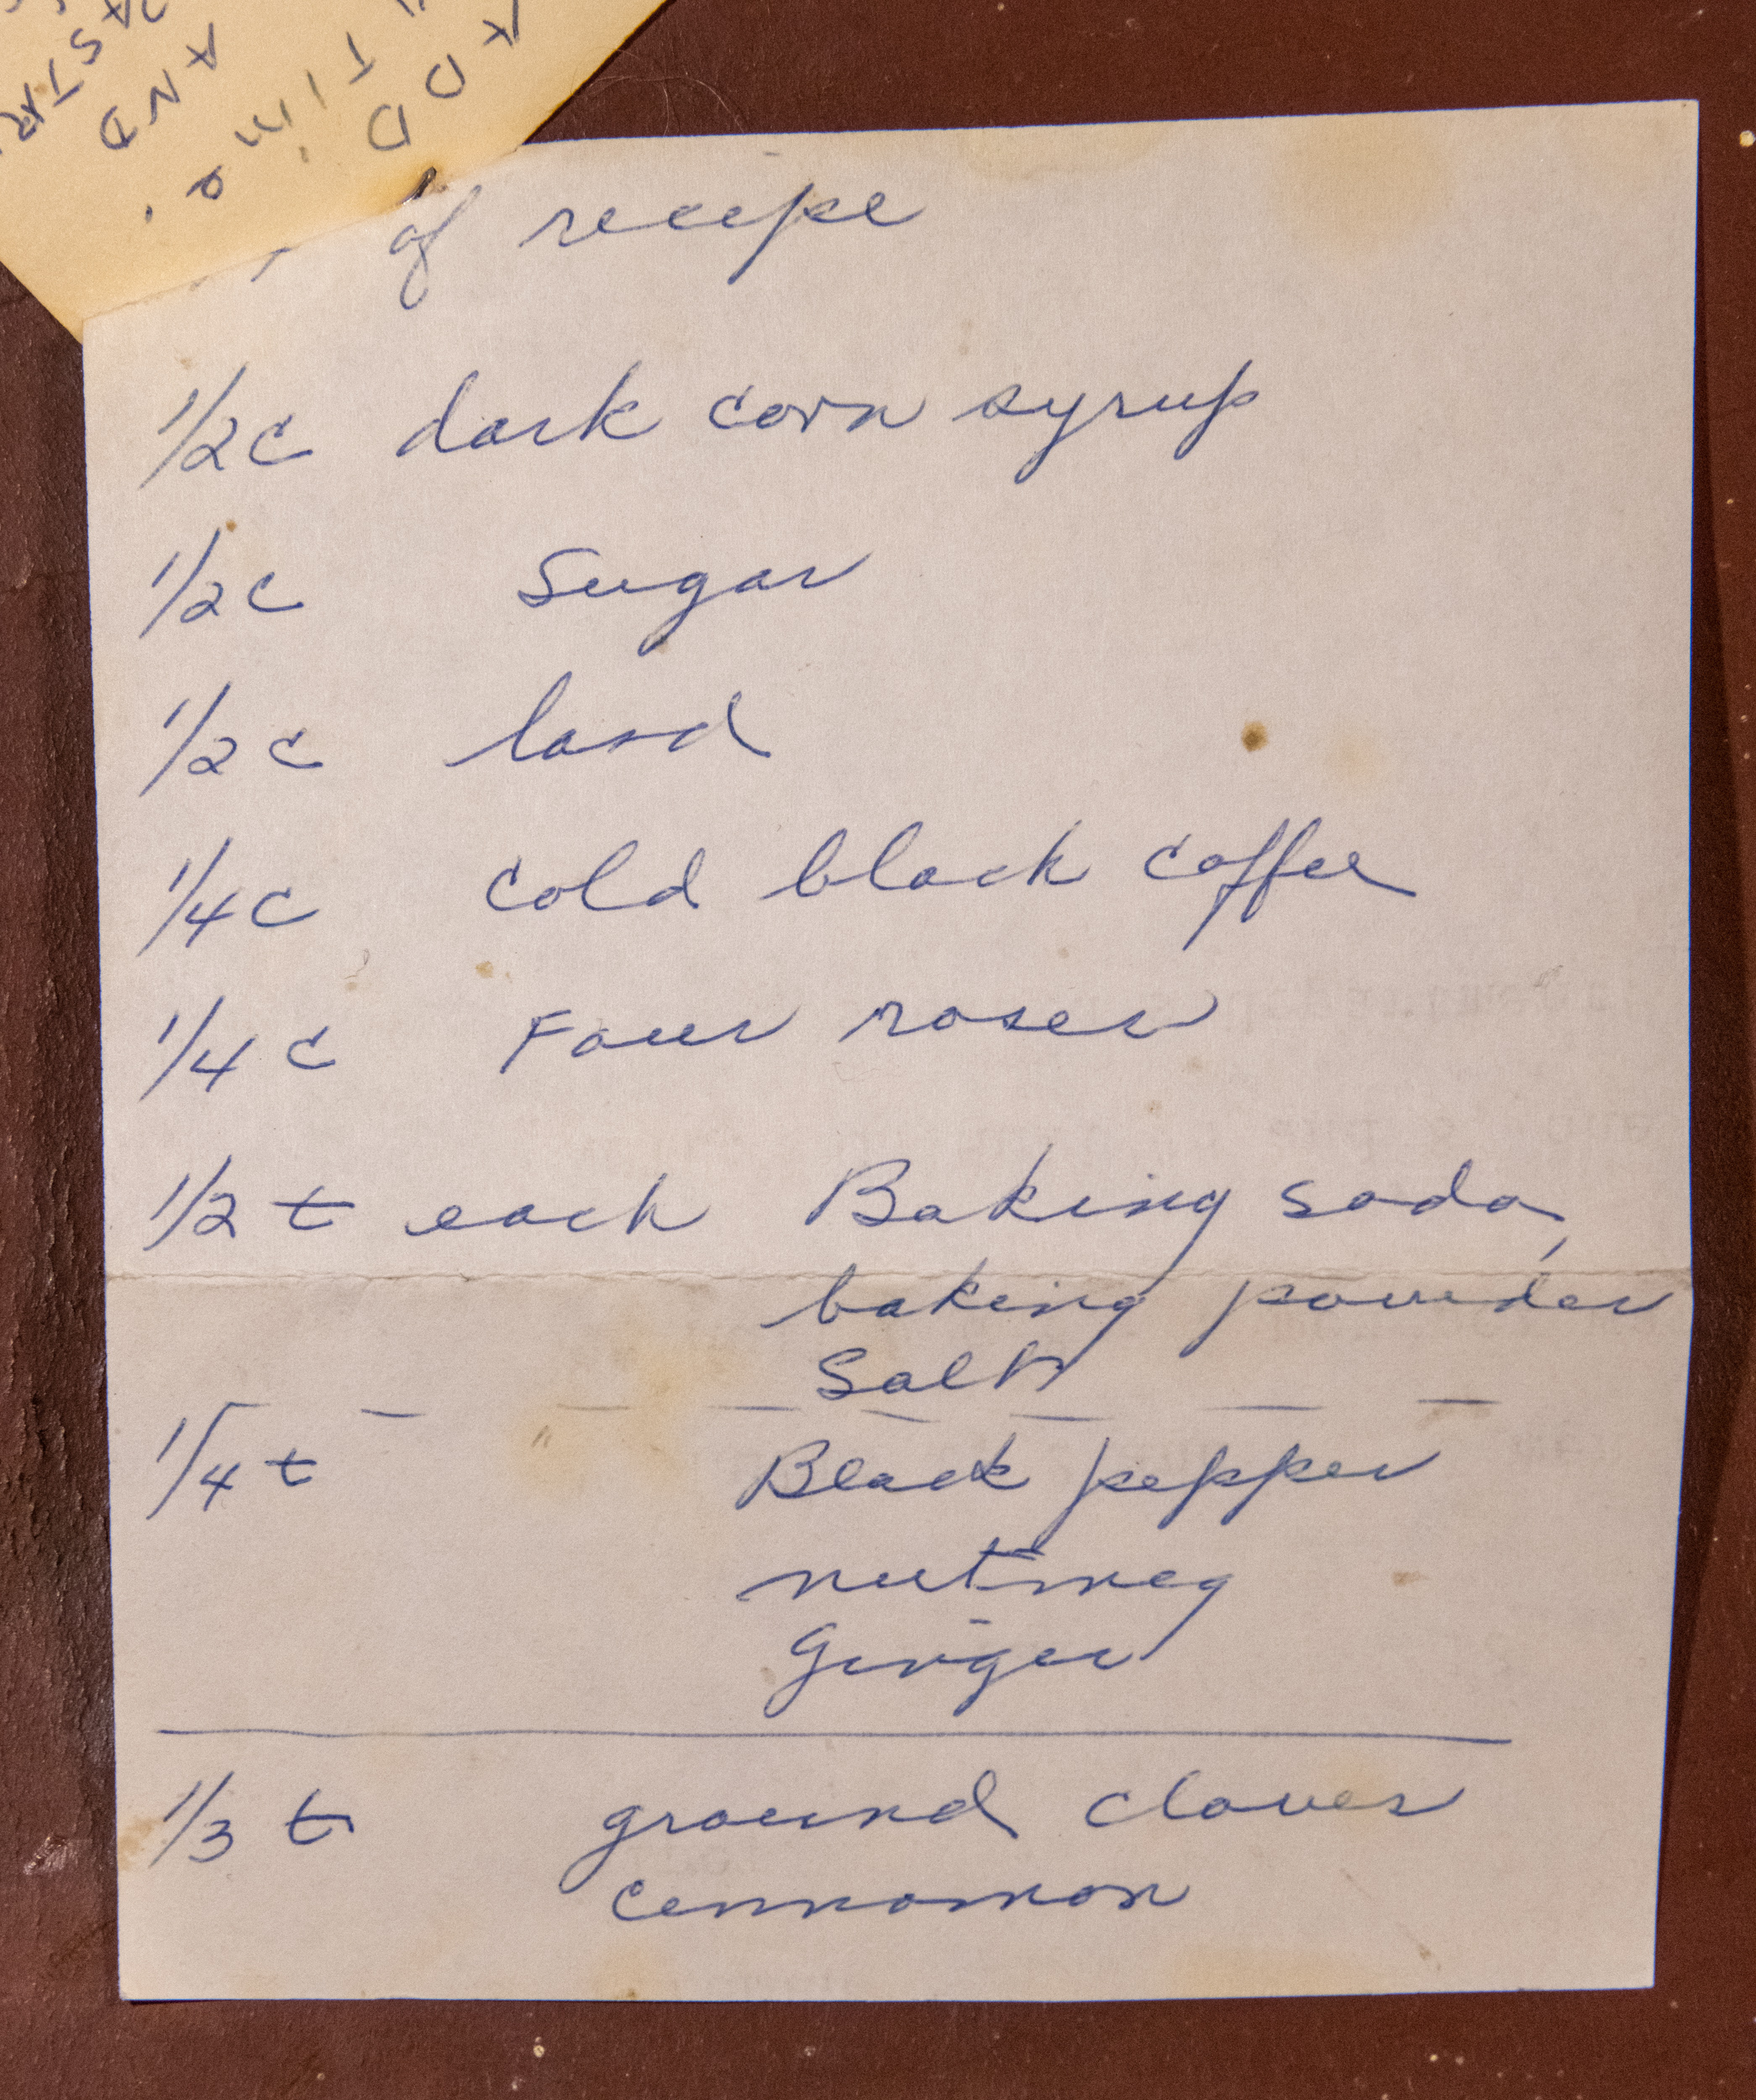 AND
TIME
ADD
of recipe
1/2 c dark corn syrup
1/2 c Sugar
1/2 c lard
1/4 c cold black coffee
1/4 c Four roses
1/2 t each Baking soda,
baking powder
Salt
1/4 t Black pepper
nutmeg
Ginger
1/3 t ground cloves
cennamon